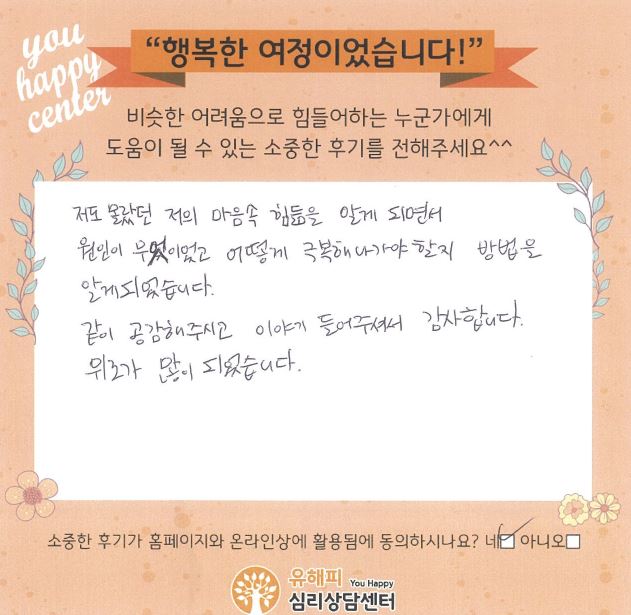 you
happy
center
“행복한 여정이었습니다!”
비슷한 어려움으로 힘들어하는 누군가에게
도움이 될 수 있는 소중한 후기를 전해주세요^^
저도 몰랐던 저의 마음속 힘듦을 알게 되면서
원인이 무엇이었고 어떻게 극복해나가야 할지 방법을
알게되었습니다.
같이 공감해주시고 이야기 들어주셔서 감사합니다.
위로가 많이 되었습니다.
소중한 후기가 홈페이지와 온라인상에 활용됨에 동의하시나요? 네☑ 아니오□
유해피 You Happy
심리상담센터